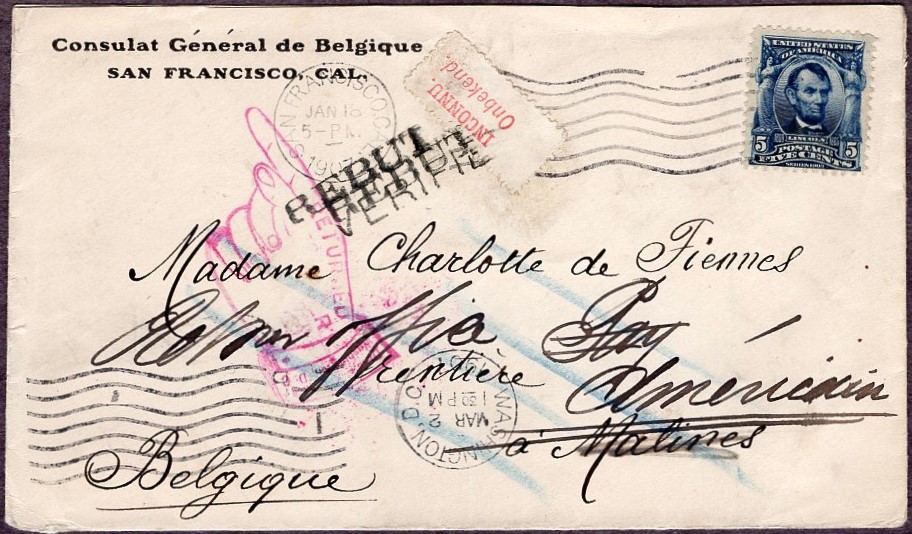 Consulat Général de Belgique
SAN FRANCISCO, CAL.
INCONNU.
Onbekend.
SAN FRANCISCO, CA
JAN 18
5-PM
1907
UNITED STATES
OF AMERICA
5 LINCOLN 5
POSTAGE
FIVE CENTS
SERIES 1902
REBUT
REBUT
VERIFIE
RETURNED
Madame Charlotte de Fiennes
Retour Office Pay
Américain
Rentière
à Malines
Belgique
WASHINGTON, D.C.
MAR 2
1 30 PM